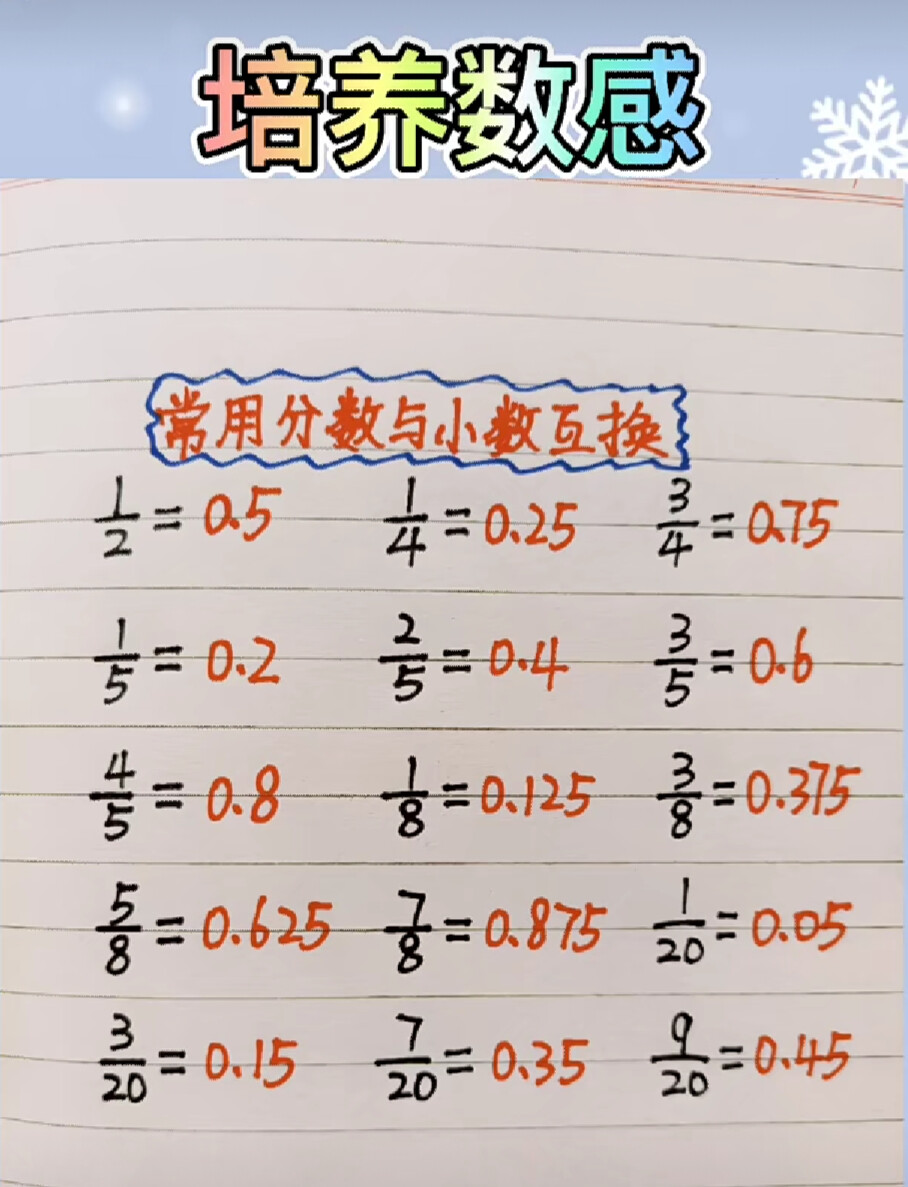 培养数感
常用分数与小数互换
1/2 = 0.5 1/4 = 0.25 3/4 = 0.75
1/5 = 0.2 2/5 = 0.4 3/5 = 0.6
4/5 = 0.8 1/8 = 0.125 3/8 = 0.375
5/8 = 0.625 7/8 = 0.875 1/20 = 0.05
3/20 = 0.15 7/20 = 0.35 9/20 = 0.45